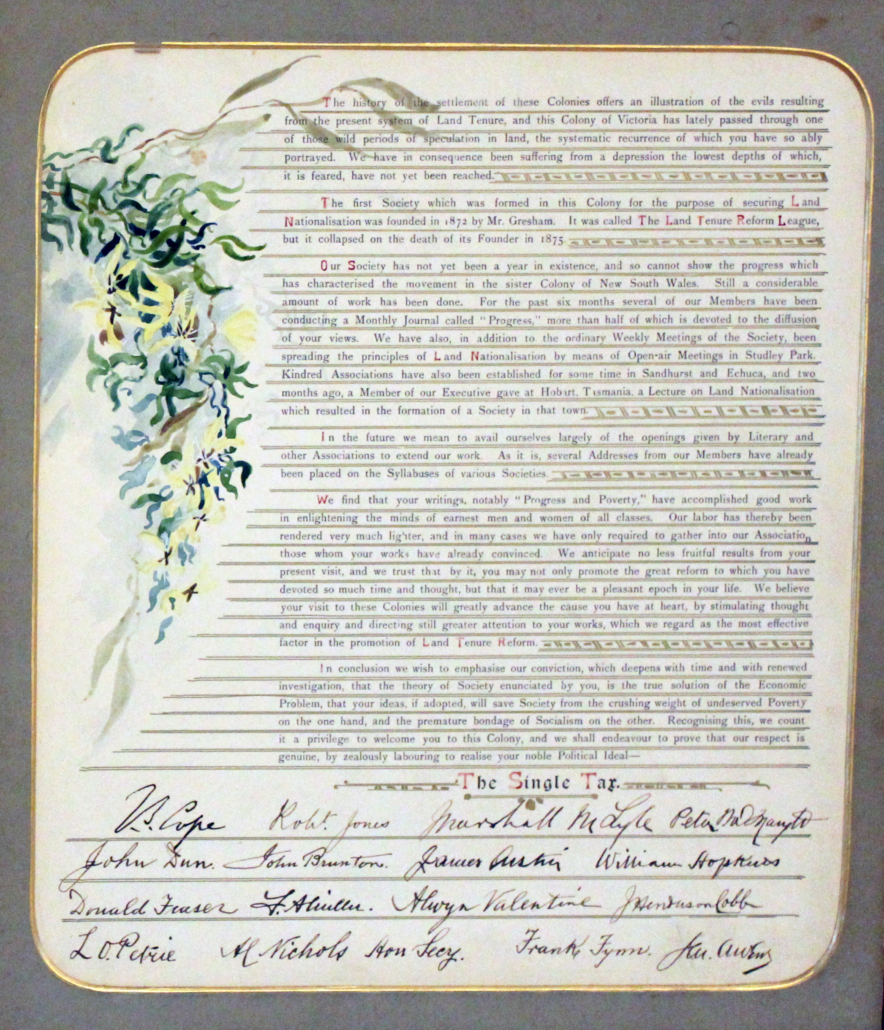 The history of the settlement of these Colonies offers an illustration of the evils resulting
from the present system of Land Tenure, and this Colony of Victoria has lately passed through one
of those wild periods of speculation in land, the systematic recurrence of which you have so ably
portrayed. We have in consequence been suffering from a depression the lowest depths of which,
it is feared, have not yet been reached.
The first Society which was formed in this Colony for the purpose of securing Land
Nationalisation was founded in 1872 by Mr. Gresham. It was called The Land Tenure Reform League,
but it collapsed on the death of its Founder in 1875.
Our Society has not yet been a year in existence, and so cannot show the progress which
has characterised the movement in the sister Colony of New South Wales. Still a considerable
amount of work has been done. For the past six months several of our Members have been
conducting a Monthly Journal called "Progress," more than half of which is devoted to the diffusion
of your views. We have also, in addition to the ordinary Weekly Meetings of the Society, been
spreading the principles of Land Nationalisation by means of Open-air Meetings in Studley Park.
Kindred Associations have also been established for some time in Sandhurst and Echuca, and two
months ago, a Member of our Executive gave at Hobart, Tasmania, a Lecture on Land Nationalisation
which resulted in the formation of a Society in that town.
In the future we mean to avail ourselves largely of the openings given by Literary and
other Associations to extend our work. As it is, several Addresses from our Members have already
been placed on the Syllabuses of various Societies.
We find that your writings, notably "Progress and Poverty," have accomplished good work
in enlightening the minds of earnest men and women of all classes. Our labor has thereby been
rendered very much lighter, and in many cases we have only required to gather into our Association
those whom your works have already convinced. We anticipate no less fruitful results from your
present visit, and we trust that by it, you may not only promote the great reform to which you have
devoted so much time and thought, but that it may ever be a pleasant epoch in your life. We believe
your visit to these Colonies will greatly advance the cause you have at heart, by stimulating thought
and enquiry and directing still greater attention to your works, which we regard as the most effective
factor in the promotion of Land Tenure Reform.
In conclusion we wish to emphasise our conviction, which deepens with time and with renewed
investigation, that the theory of Society enunciated by you, is the true solution of the Economic
Problem, that your ideas, if adopted, will save Society from the crushing weight of undeserved Poverty
on the one hand, and the premature bondage of Socialism on the other. Recognising this, we count
it a privilege to welcome you to this Colony, and we shall endeavour to prove that our respect is
genuine, by zealously labouring to realise your noble Political Ideal—
The Single Tax.
Cope Robt. Jones Marshall Lyle Peter
John Dun. John Brunton. James Austin William Hopkins
Donald Fraser Alwyn Valentine Cobb
L O. Petrie Nichols Hon Secy. Frank Fynn.